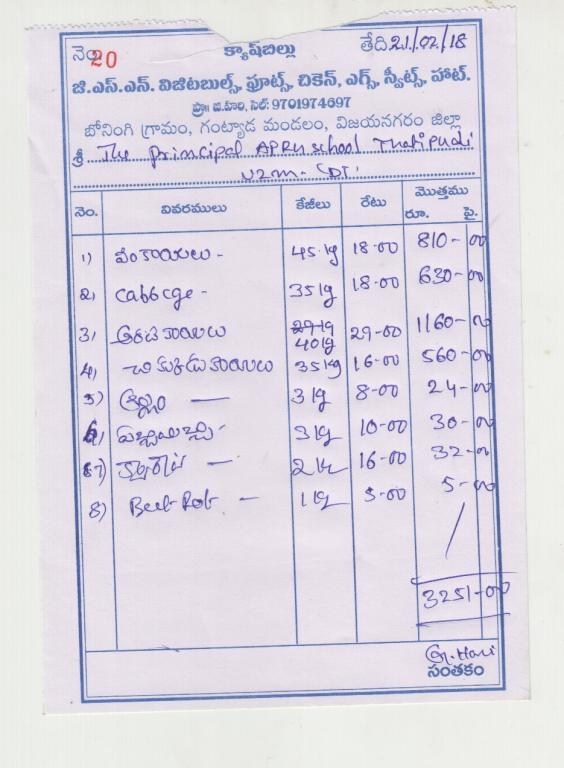 నెం. 20 క్యాష్‌బిల్లు తేది 21/02/18
జి.ఎస్.ఎన్. విజిటబుల్స్, ఫ్రూట్స్, చికెన్, ఎగ్స్, స్వీట్స్, హాట్.
ప్రొ॥ జి.హరి, సెల్: 9701974697
బోనింగి గ్రామం, గంట్యాడ మండలం, విజయనగరం జిల్లా
శ్రీ The principal APRH school Thatipudi
VZM. (DT)
నెం. వివరములు కేజీలు రేటు మొత్తము రూ. పై.
1) వంకాయలు - 45 kg 18-00 810-00
2) cabbcge - 35 kg 18-00 630-00
3) అరటికాయలు 40 kg 29-00 1160-00
4) చిక్కుడుకాయలు 35 kg 16-00 560-00
5) అల్లం — 3 kg 8-00 24-00
6) పచ్చిమిర్చి - 3 kg 10-00 30-00
7) క్యారెట్ — 2 kg 16-00 32-00
8) Beet Rot - 1 kg 5-00 5-00
3251-00
G. Hari
సంతకం